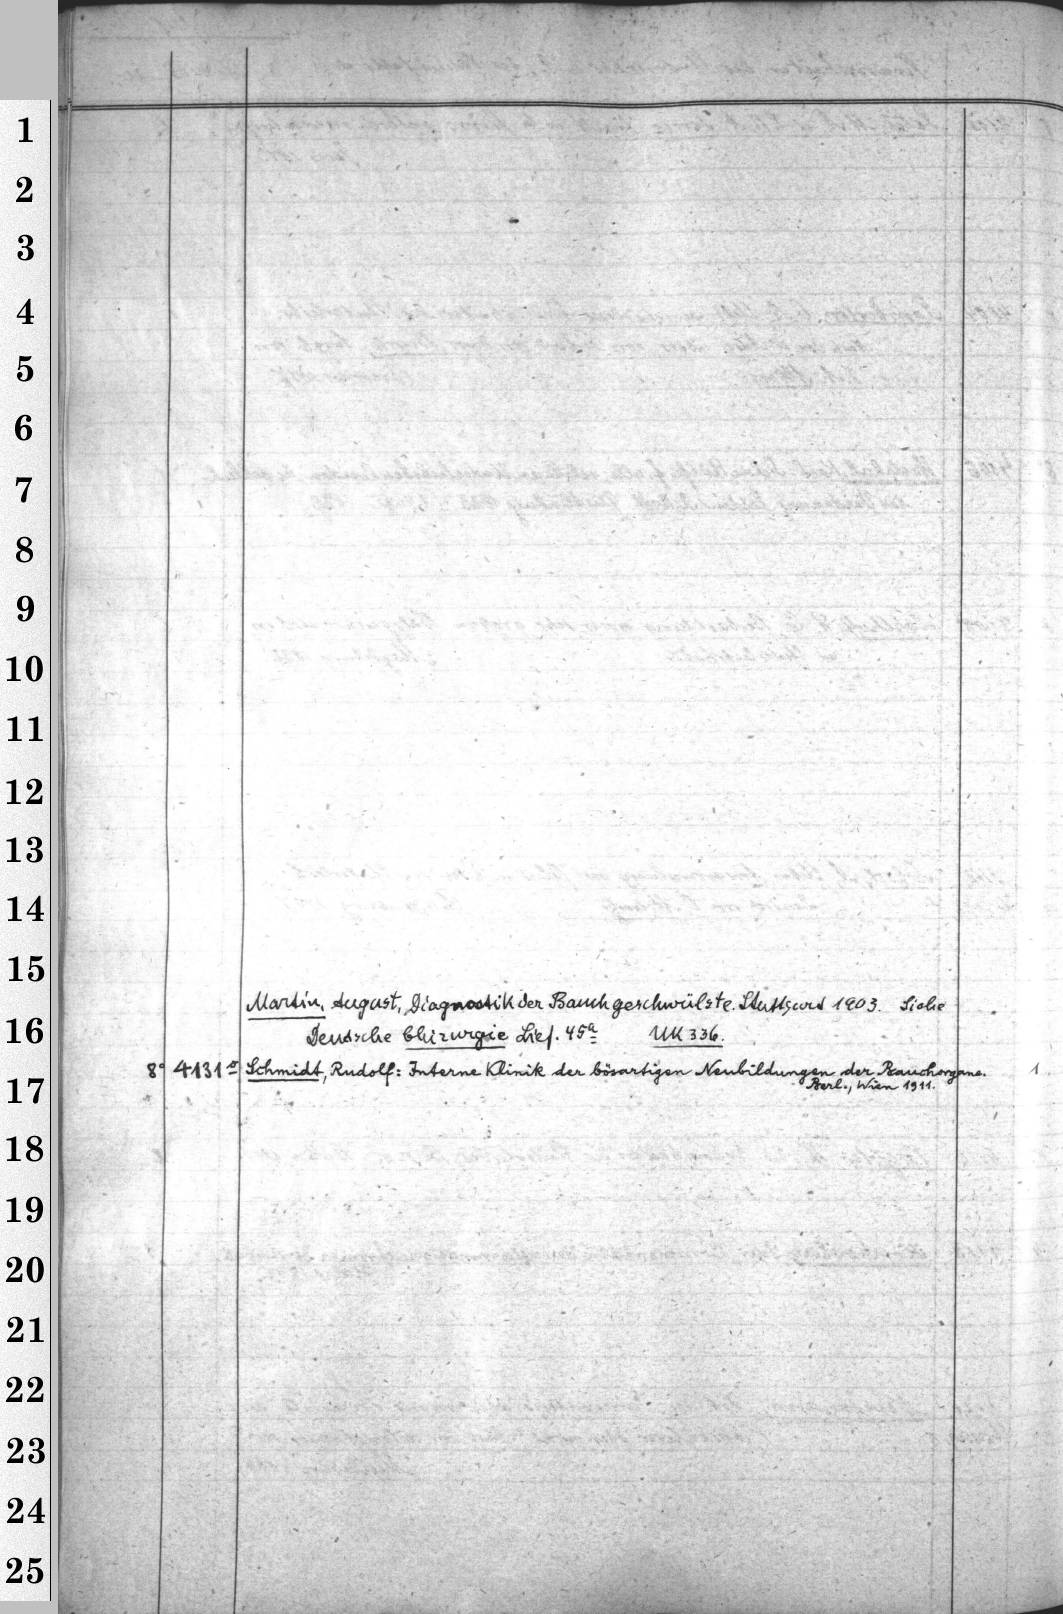 1
2
3
4
5
6
7
8
9
10
11
12
13
14
15
Martin, August, Diagnostik der Bauchgeschwülste. Stuttgart 1903. Siehe
16
Deutsche Chirurgie Lief. 45a UK 336.
8° 4131a Schmidt, Rudolf: Interne Klinik der bösartigen Neubildungen der Bauchorgane. 1
17
Berl., Wien 1911.
18
19
20
21
22
23
24
25